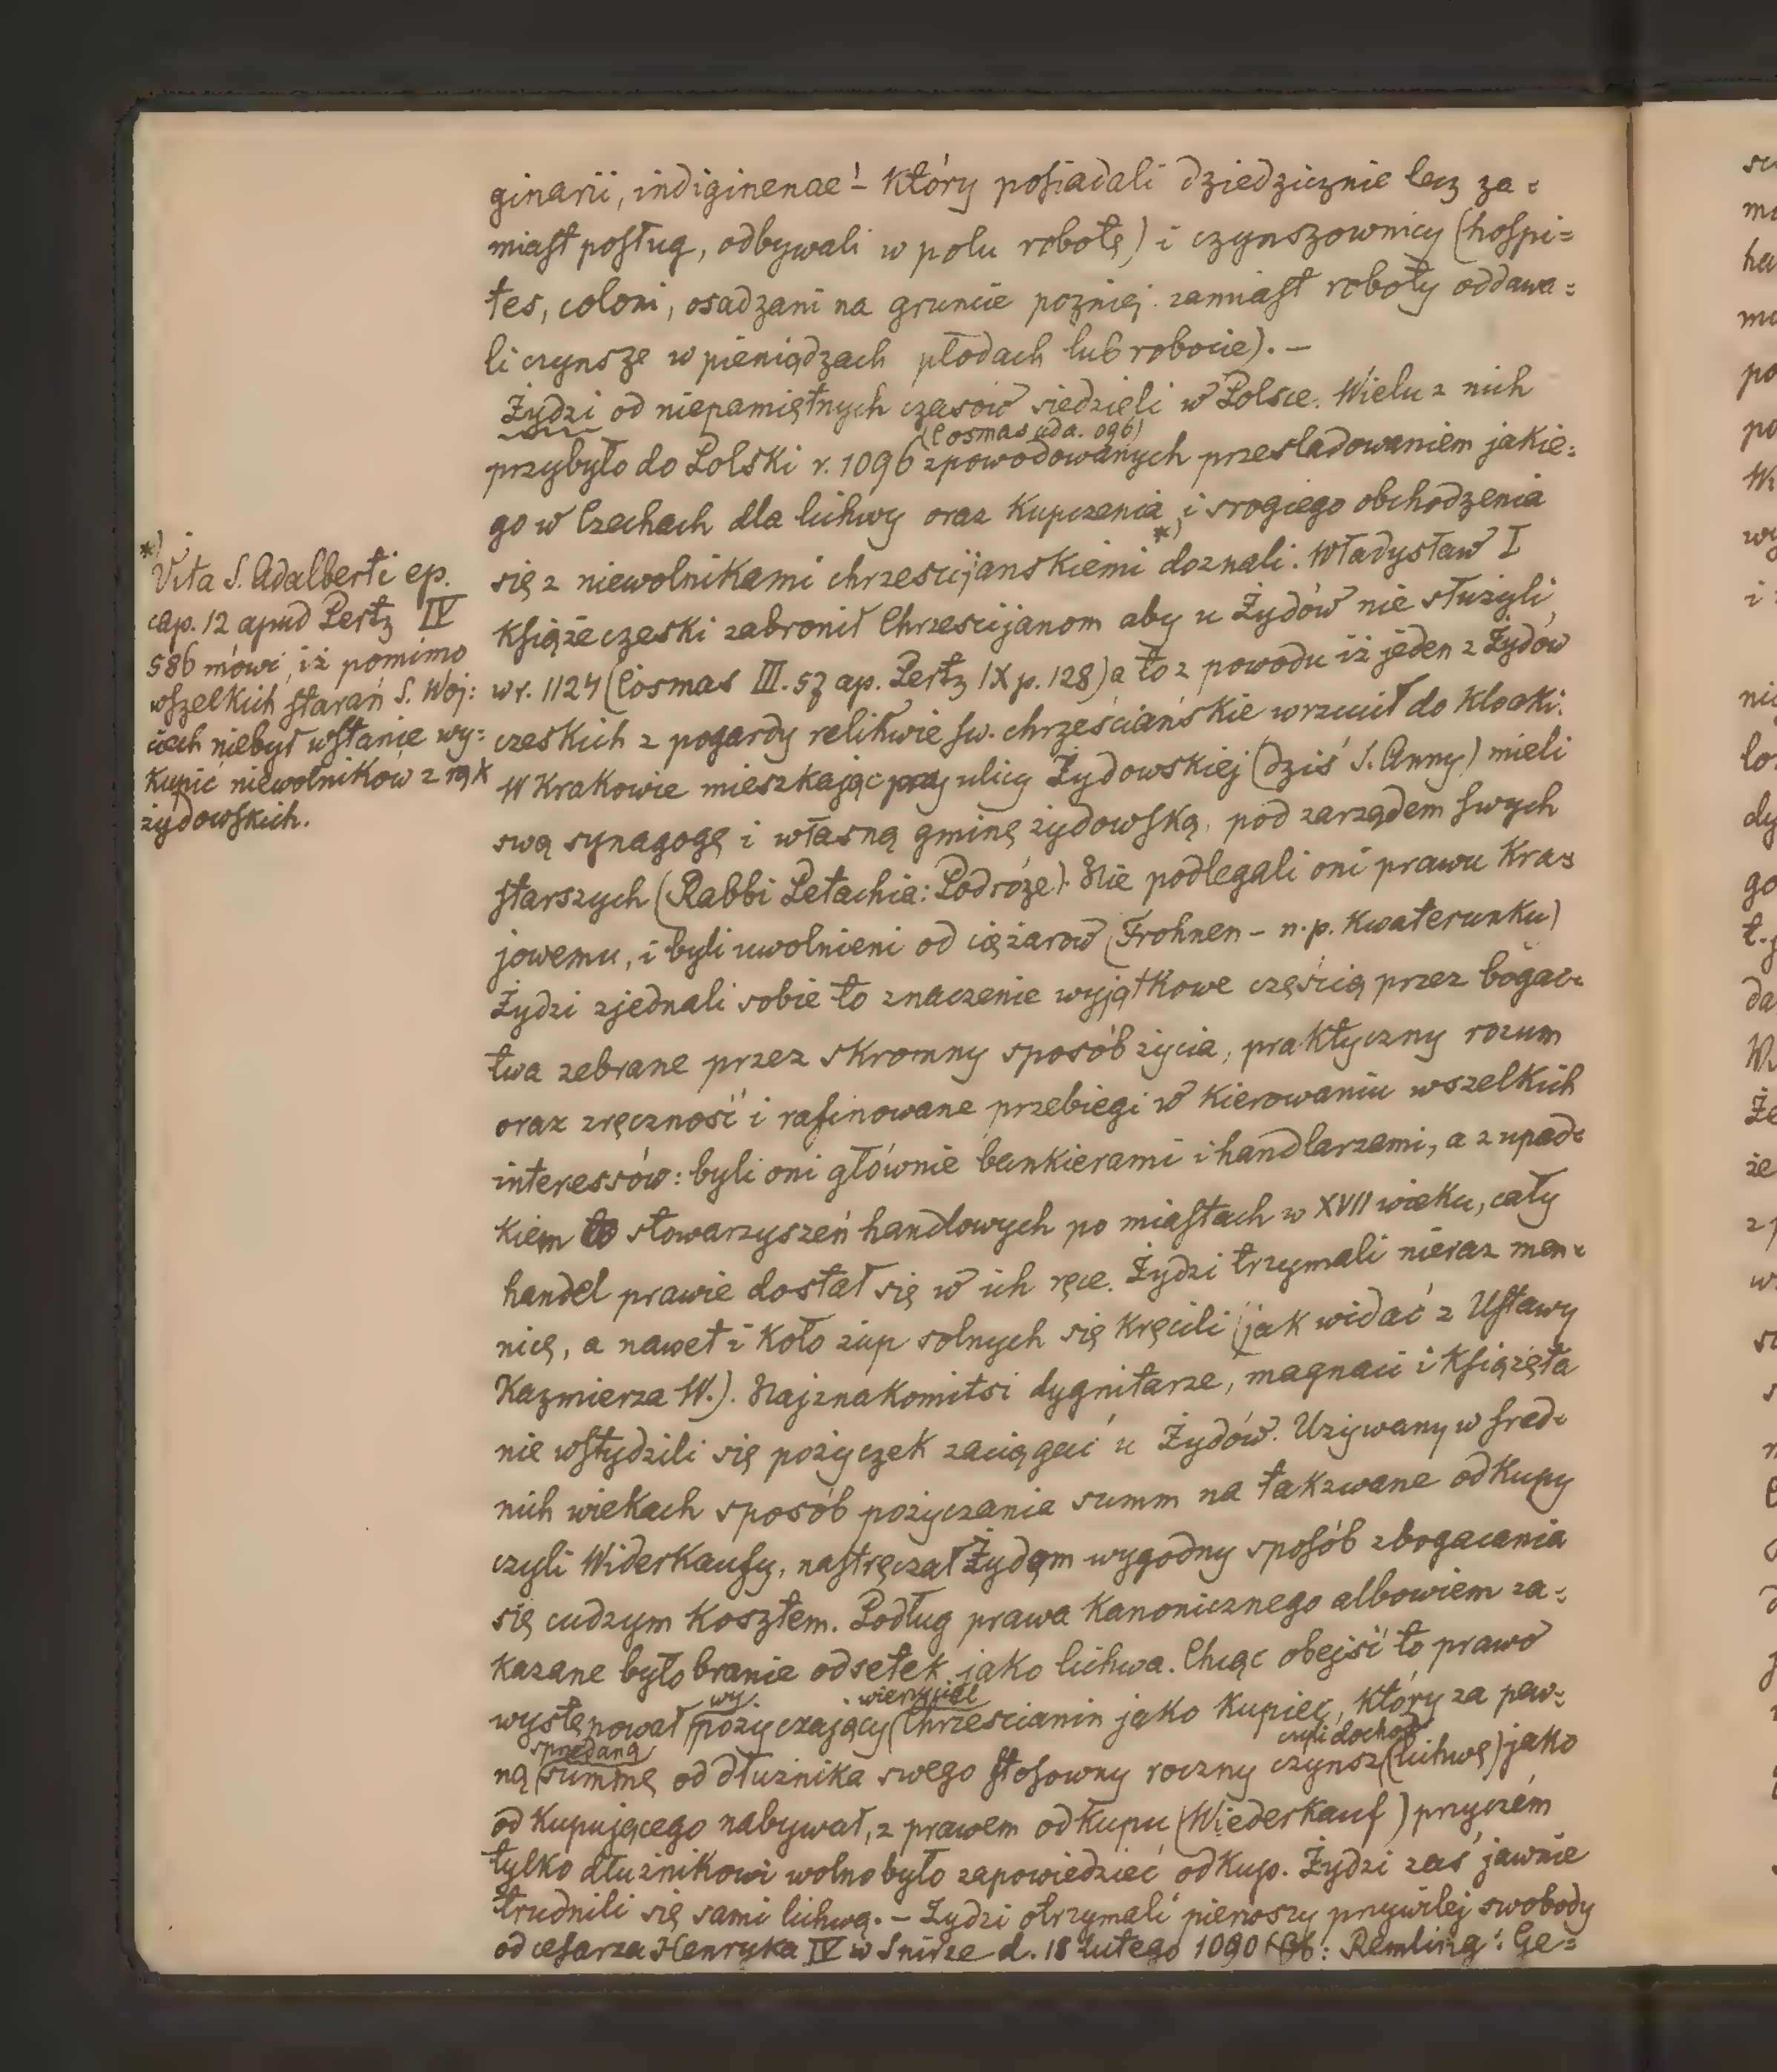 ginarii, indiginenae! – który posiadali dziedzicznie lecz za=
miast posług, odbywali w polu robotę) i czynszownicy (hospi=
tes, coloni, osadzani na gruncie pozniej zamiast roboty oddawa=
li czynsze w pieniądzach płodach lub robocie). –
Żydzi od niepamiętnych czasów siedzieli w Polsce. Wielu z nich
(Cosmas ad a. 096)
przybyło do Polski r. 1096 spowodowanych przesladowaniem jakie=
go w Czechach dla lichwy oraz kupczenia i srogiego obchodzenia
się z niewolnikami chrzescijanskiemi *) doznali. Władysław I
książe czeski zabronił Chrzescijanom aby u Żydów nie służyli,
w r. 1124 (Cosmas III. 57 ap. Pertz IX p. 128) a to z powodu iż jeden z Żydów
czeskich z pogardy relikwie sw. chrześciańskie wrzucił do kloaki.
W Krakowie mieszkając przy ulicy Żydowskiej (dziś S. Anny) mieli
swą synagogę i własną gminę żydowską, pod zarządem swych
starszych (Rabbi Petachia: Podróże). Nie podlegali oni prawu kra=
jowemu, i byli uwolnieni od ciężarow (Frohnen – n.p. kwaterunku)
Żydzi zjednali sobie to znaczenie wyjątkowe częścią przez bogac=
twa zebrane przez skromny sposób życia, praktyczny rozum
oraz zręczność i rafinowane przebiegi w kierowaniu wszelkich
interessów: byli oni głównie bankierami i handlarzami, a z upad=
kiem stowarzyszeń handlowych po miastach w XVII wieku, cały
handel prawie dostał się w ich ręce. Żydzi trzymali nieraz men=
nicę, a nawet i koło żup solnych się kręcili (jak widać z Ustawy
Kazmierza W.). Najznakomitsi dygnitarze, magnaci i książęta
nie wstydzili się pożyczek zaciągać u Żydów. Używany w sred=
nich wiekach sposób pożyczania summ na takzwane odkupy
czyli Widerkaufy, nastręczał Żydom wygodny sposób zbogacania
się cudzym kosztem. Podług prawa kanonicznego albowiem za=
kazane było branie odsetek jako lichwa. Chcąc obejść to prawo
wy. wierzyciel
występował (pożyczający (Chrzescianin jako kupiec, który za pew=
spredaną czyli dochod
ną (summę od dłużnika swego stosowny roczny czynsz (lichwę) jako
odkupującego nabywał, z prawem odkupu (Wiederkauf) przyczém
tylko dłużnikowi wolno było zapowiedzieć odkup. Żydzi zaś jawnie
trudnili się sami lichwą. – Żydzi otrzymali pierwszy przywilej swobody
od cesarza Henryka IV w Snirze d. 18 lutego 1090 : Remling: Ge=
*)
Vita S. Adalberti ep.
cap. 12 apud Pertz IV
586 mówi, iż pomimo
wszelkich starań S. Woj:
ciech niebył wstanie wy=
kupić niewolników z rąk
żydowskich.